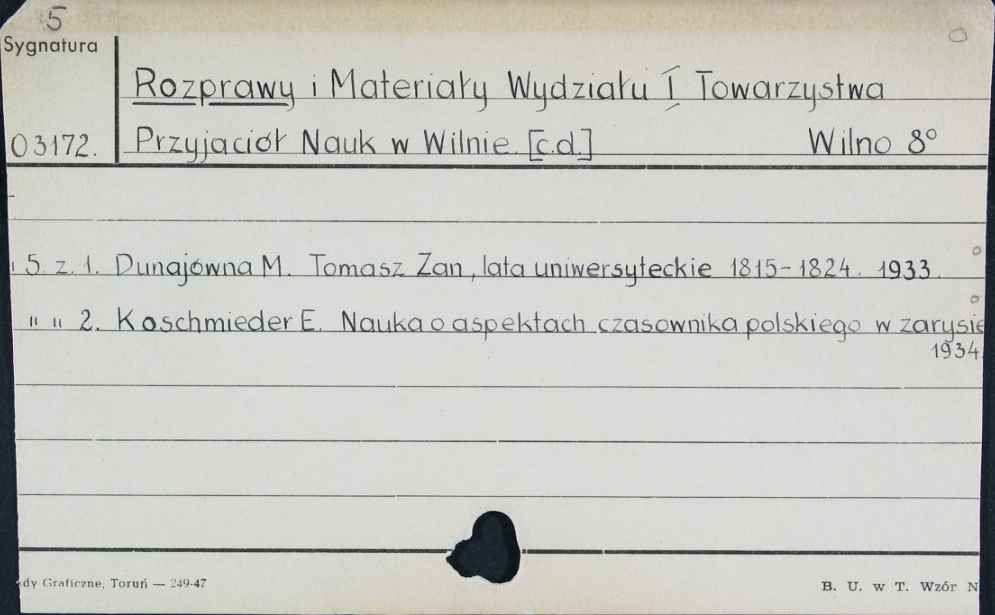 5
Sygnatura
Rozprawy i Materiały Wydziału I Towarzystwa
03172. Przyjaciół Nauk w Wilnie. [c.d.] Wilno 8°
5 z. 1. Dunajówna M. Tomasz Zan, lata uniwersyteckie 1815-1824. 1933.
" " 2. Koschmieder E. Nauka o aspektach czasownika polskiego w zarysie
1934.
dy Graficzne, Toruń — 249-47
B. U. w T. Wzór N